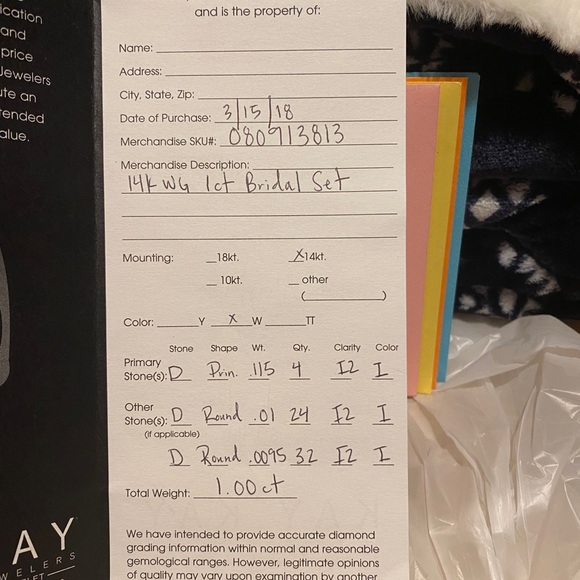 ication
and
price
Jewelers
ute an
ended
alue.
AY
WELERS
LET
and is the property of:
Name:
Address:
City, State, Zip:
Date of Purchase: 3|15|18
Merchandise SKU#: 080913813
Merchandise Description:
14K WG 1ct Bridal Set
Mounting: _18kt. X14kt.
_10kt. _other
(________)
Color: ____Y X W ____TT
Stone Shape Wt. Qty. Clarity Color
Primary
Stone(s): D Prin. .115 4 I2 I
Other
Stone(s): D Round .01 24 I2 I
(if applicable)
D Round .0095 32 I2 I
Total Weight: 1.00 ct
We have intended to provide accurate diamond
grading information within normal and reasonable
gemological ranges. However, legitimate opinions
of quality may vary upon examination by another